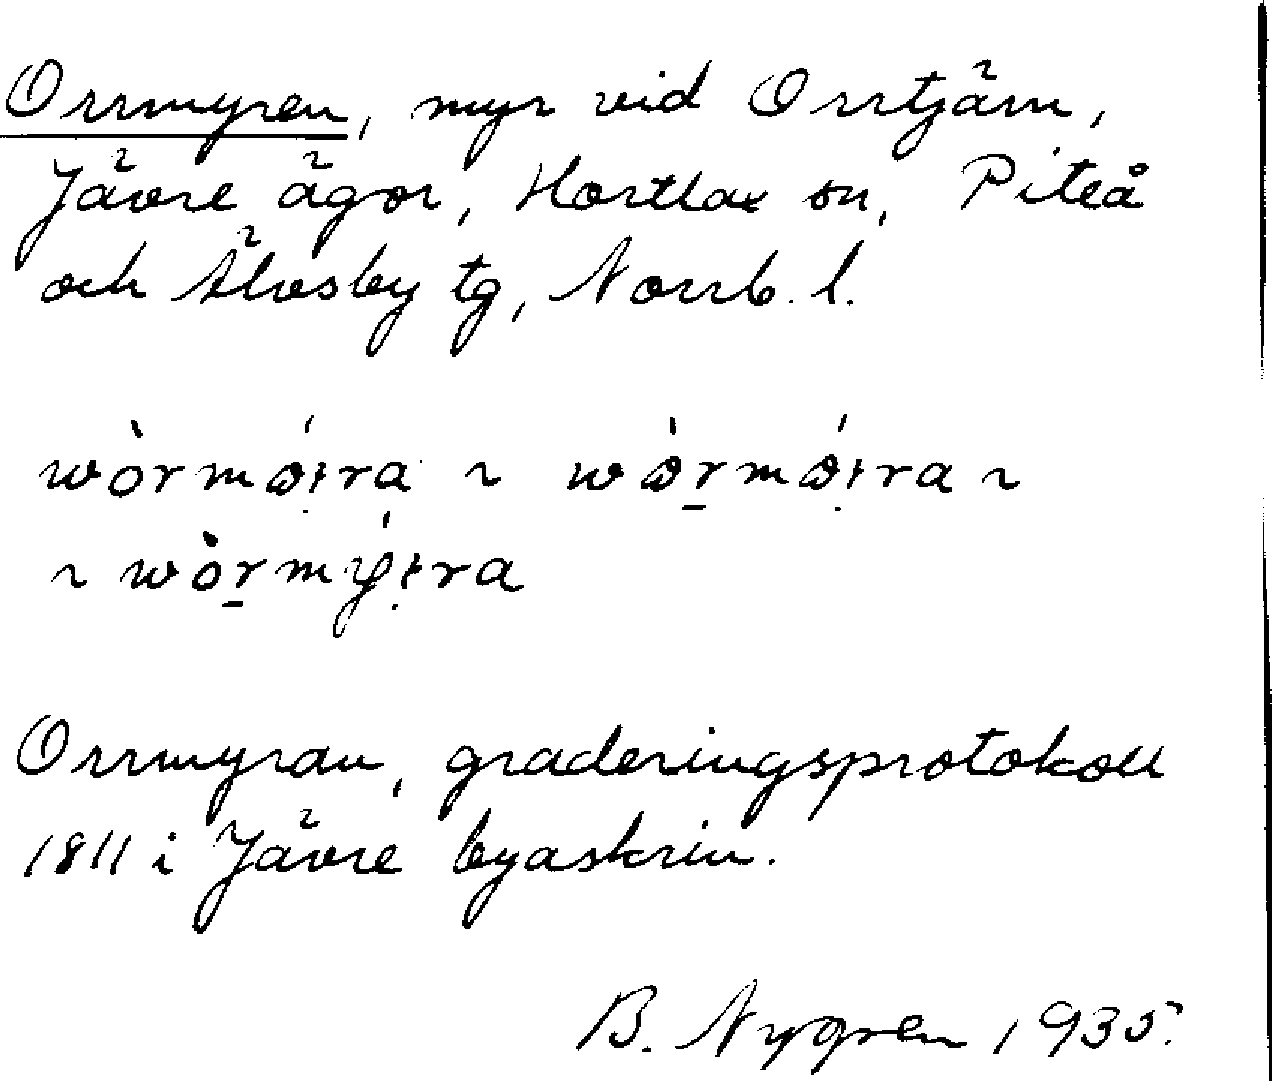 Orrmyren, myr vid Orrtjärn,
Jävre ägor, Hortlax sn, Piteå
och Älvsby tg, Norrb. l.
Orrmyran, graderingsprotokoll
1811 i Jävre byaskrin.
B. Nygren 1935.